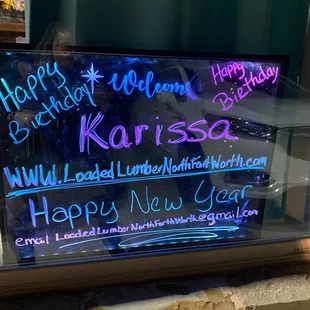 Happy Birthday
Welcome
Happy Birthday
Karissa
WWW.LoadedLumberNorthFortWorth.com
Happy New Year
email LoadedLumberNorthForthWorth@gmail.com